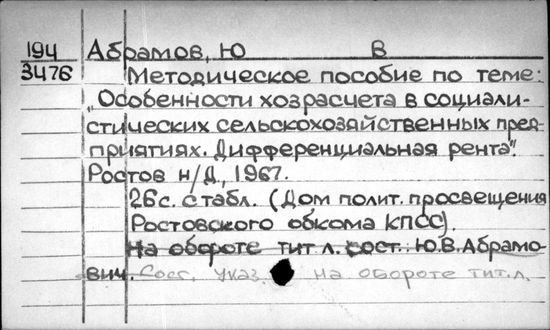 194 Абрамов, Ю В
3476 Методическое пособие по теме:
„Особенности хозрасчета в социали-
стических сельскохозяйственных пред-
приятиях. Дифференциальная рента".
Ростов н/Д, 1967.
26с. с табл. (Дом полит. просвещения
Ростовского обкома КПСС).
На обороте тит л. сост.: Ю.В. Абрамо-
вич. Сост. указ. на обороте тит. л.